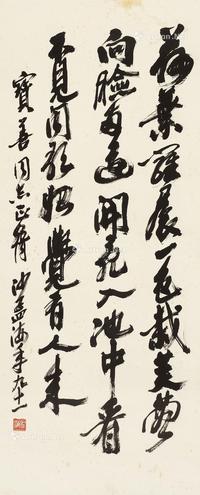 荷葉羅裙一色裁芙蓉
向臉兩邊開亂入池中看
不見聞歌始覺有人來
寶善同志正 沙孟海年九十一